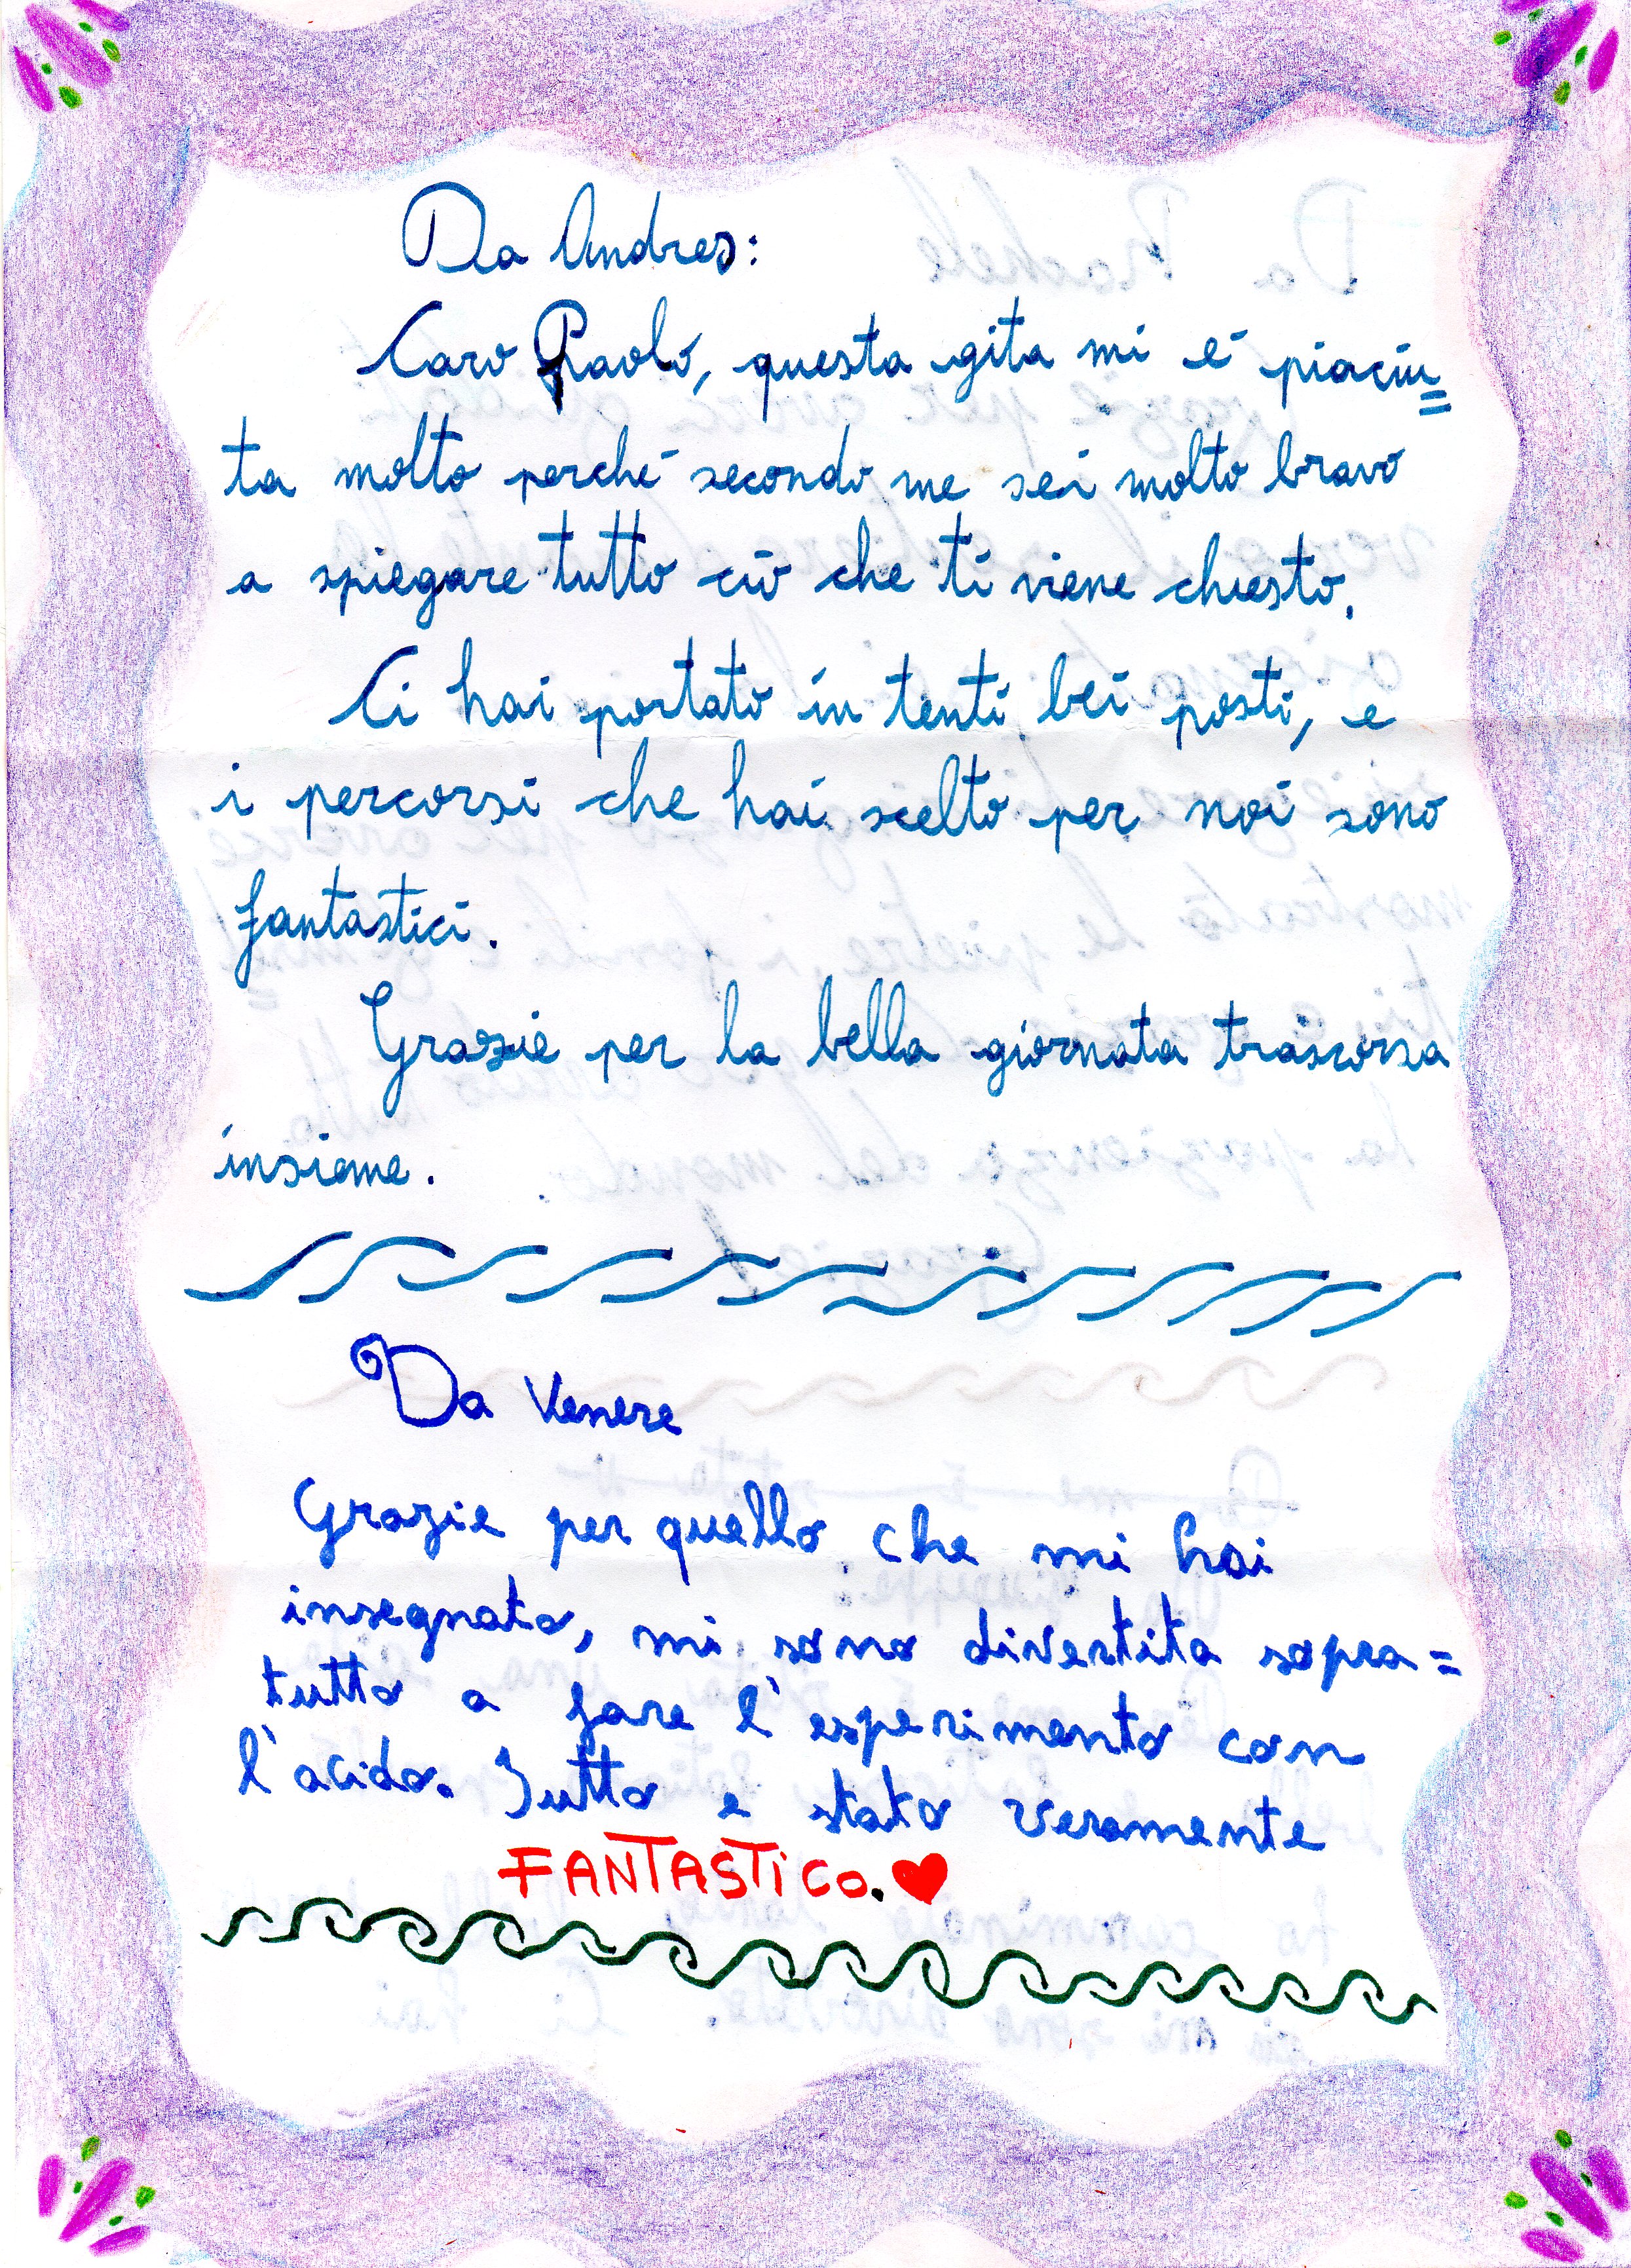 Da Andres:
Caro Paolo, questa gita mi é piaciu=
ta molto perché secondo me sei molto bravo
a spiegare tutto ciò che ti viene chiesto.
Ci hai portato in tenti bei posti, e
i percorsi che hai scelto per noi sono
fantastici.
Grazie per la bella giornata trascorsa
insieme.
Da Venere
Grazie per quello che mi hai
insegnato, mi sono divertita sopra=
tutto a fare l'esperimento con
l'acido. Tutto e stato veramente
FANTASTICO.